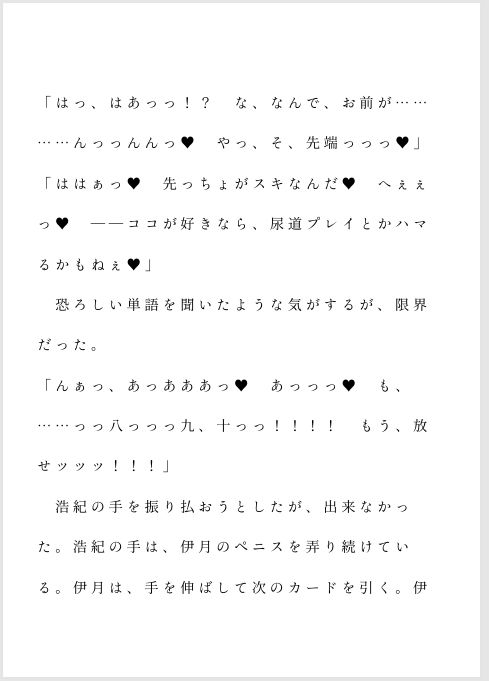 「はっ、はあっっ！？　な、なんで、お前が……
……んっっんんっ♥　やっ、そ、先端っっっ♥」
「ははぁっ♥　先っちょがスキなんだ♥　へぇぇ
っ♥　――ココが好きなら、尿道プレイとかハマ
るかもねぇ♥」
　恐ろしい単語を聞いたような気がするが、限界
だった。
「んぁっ、あっああぁっ♥　あっっっ♥　も、
……っっ八っっっ九、十っっ！！！！　もう、放
せッッッ！！！」
　浩紀の手を振り払おうとしたが、出来なかっ
た。浩紀の手は、伊月のペニスを弄り続けてい
る。伊月は、手を伸ばして次のカードを引く。伊